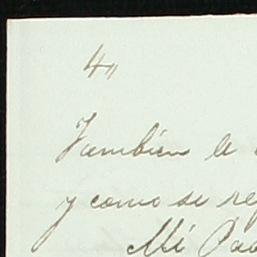 4"
También le
y como se re
Mi